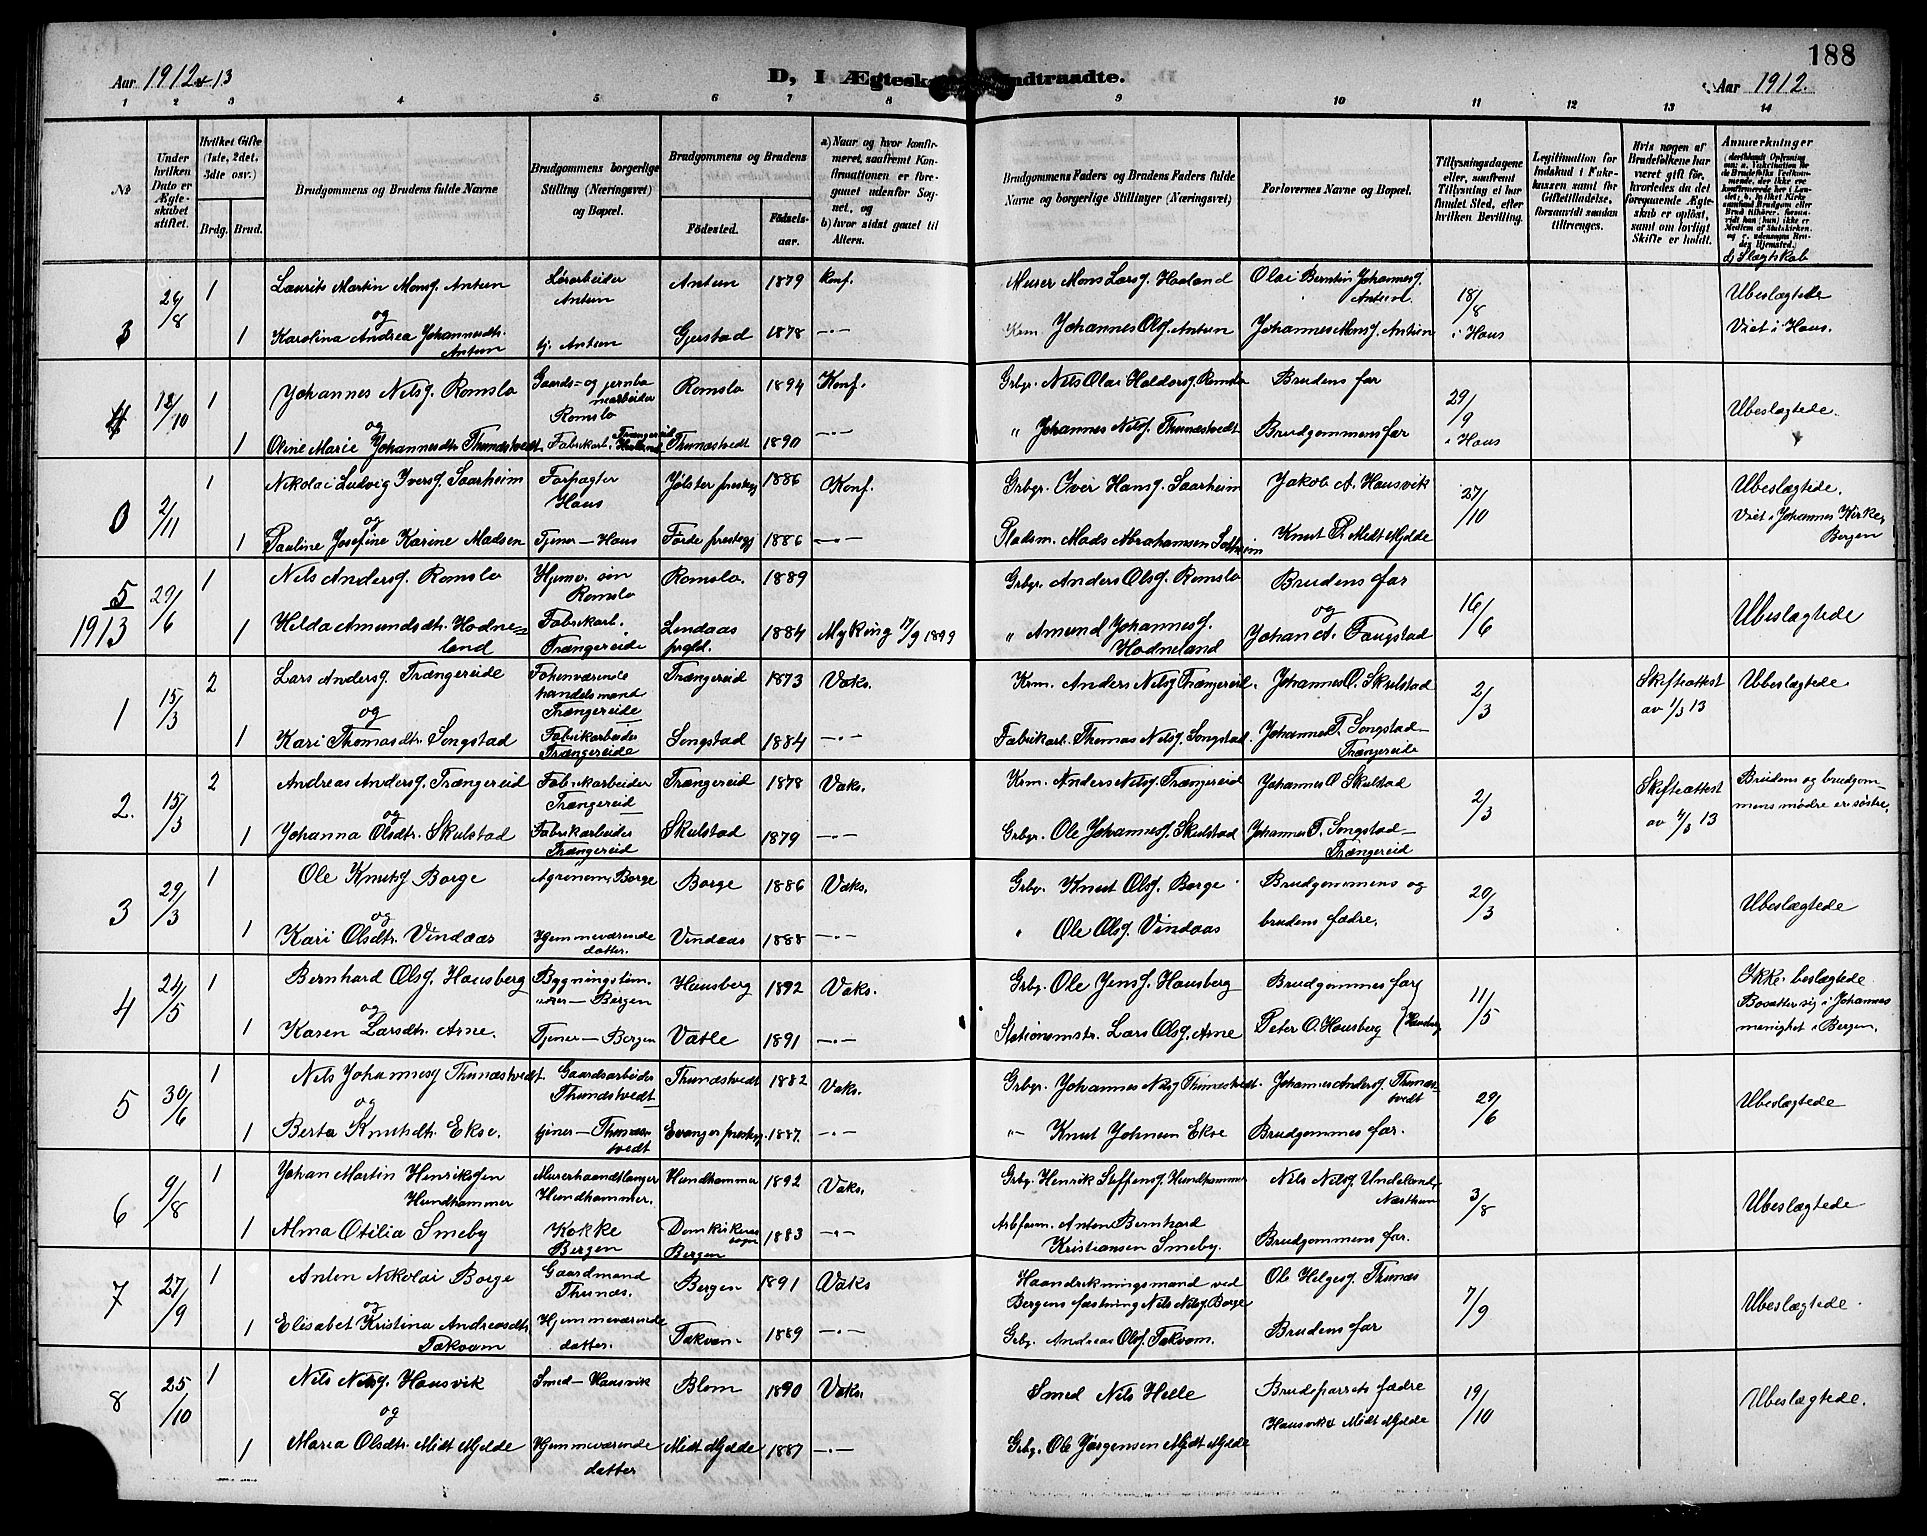 188
Aar 1912 & 13
D, I Ægtesk
ndtraadte.
Aar 1912.
1 2 3 4 5 6 7 8 9 10 11 12 13 14
No
Under hvilken Dato er Ægteskabet stiftet.
Hvilket Gifte (1ste, 2det, 3die osv.)
Brdg. Brud.
Brudgommens og Brudens fulde Navne
Brudgommens borgerlige Stilling (Næringsvei) og Bopæl.
Brudgommens og Brudens
Födested.
Födsels-aar.
a) Naar og hvor konfirmeret, saafremt Konfirmationen er foregaaet udenfor Sognet, og
b) hvor sidst gaaet til Alters.
Brudgommens Faders og Brudens Faders fulde Navne og borgerlige Stillinger (Næringsvei)
Forlovernes Navne og Bopæl.
Tillysningsdagene eller, saafremt Tillysning ei har fundet Sted, efter hvilken Bevilling.
Legitimation for Indskud i Enkekassen samt for Giftetilladelse, forsaavidt saadan tiltrænges.
Hvis nogen af Brudefolkene har været gift før, hvorledes da det foregaaende Ægteskab er oplöst, samt om lovligt Skifte er holdt.
Anmærkninger
d) Slægtskab
3 26/8 1 Laurits Martin Monsg. Antun Lösarbeider Antun Antun 1879 Konf. Murer Mons Larsg. Haaland Olai Berntin Johannesg. Antun. 18/8 i Haus Ubeslægtede
og
1 Karolina Andrea Johannesdtr. Antun tj. Antun Gjerstad 1878 —„— Johannes Olsg. Antun Johannes Monsg. Antun Viet i Haus.
4 12/10 1 Johannes Nilsg. Romslo Gaards- og jernbanearbeider Romslo Romslo 1894 Konf. Grbr. Nils Olai Haldorsg. Romslo Brudens far 29/9 i Haus Ubeslægtede.
og
1 Oline Marie Johannesdtr. Thunæstvedt Fabrikarb. Trængereid Thunæstvedt 1890 —„— „ Johannes Nilsg. Thunæstvedt Brudgommens far
0 2/11 1 Nikolai Ludvig Iversg. Saarheim Forpagter Haus Jölster prestegj 1886 Konf. Grbr. Iver Hansg. Saarheim Jakob A. Hausvik 27/10 Ubeslægtede.
og
1 Pauline Josefine Karine Madsen Tjener — Haus Förde prestegj 1886 —„— Pladsm. Mads Abrahamsen Solheim Knut P. Midt Mjelde Viet i Johannes Kirke, Bergen
5
1913 29/6 1 Nils Andersg. Romslo Hjemv. sön Romslo Romslo. 1889 Grbr. Anders Olsg. Romslo Brudens far 16/6 Ubeslægtede
og
1 Hilda Amundsdtr. Hodneland Fabrikarb. Trængereide Lindaas prgld. 1884 Myking 17/9 1899 „ Amund Johannesg. Hodneland Johan A. Taugstad
1 15/3 2 Lars Andersg. Trængereide Forhenværende handelsmand Trængereide Trængereid 1873 Vaks. Krm. Anders Nilsg Trængereid. Johannes O. Skulstad 2/3 Skifteattest av 1/3 13 Ubeslægtede
og
1 Kari Thomasdtr. Songstad Fabrikarbeider Trængereide Songstad 1884 —„— Fabrikarb. Thomas Nilsg. Songstad. Johannes T. Songstad — Trængereide
2. 15/3 2 Andreas Andersg. Trængereid Fabrikarbeider Trængereid Trængereid 1878 Vaks. Krm. Anders Nilsg. Trængereid Johannes O. Skulstad 2/3 Skifteattest av 1/3 13 Brudens og brudgommens mödre er söstre.
og
1 Johanna Olsdtr. Skulstad Fabrikarbeider Trængereid Skulstad 1879 —„— Grbr. Ole Johannesg. Skulstad Johannes T. Songstad — Trængereid
3 29/3 1 Ole Knutsg Borge Agronom, Borge Borge 1886 Vaks. Grbr. Knut Olsg. Borge Brudgommens og brudens fædre. 20/3 Ubeslægtede
og
1 Kari Olsdtr. Vindaas Hjemmeværende datter. Vindaas 1888 —„— „ Ole Olsg. Vindaas
4 24/5 1 Bernhard Olsg. Hausberg Bygningstömmrer — Bergen Hausberg 1892 Vaks. Grbr. Ole Jensg. Hausberg Brudgommes far 11/5 Ikke beslægtede
og
1 Karen Larsdtr. Arne. Tjener — Bergen Vatle 1891 —„— Stationsmstr. Lars Olsg. Arne Peter O. Hausberg Bosætter sig i Johannes menighet i Bergen.
5 30/6 1 Nils Johannesg Thunæstvedt Gaardsarbeider Thunæstvedt Thunæstvedt 1882 Vaks. Grbr. Johannes Nilsg Thunæstvedt. Johannes Andersg Thunæstvedt 29/6 Ubeslægtede
og
1 Berta Knutsdtr. Ekse. tjener — Thunæstvedt Evanger prestegj. 1887. —„— „ Knut Johnsen Ekse Brudgommes far.
6 9/8 1 Johan Martin Henriksen Hundhammer Murerhaandtlanger Hundhammer. Hundhammer 1892 Vaks. Grbr. Henrik Steffensg Hundhammer Nils Nilsg. Undeland, 3/8 Ubeslægtede
1 Alma Otilia Smeby Kokke Bergen Domkirkens sogn Bergen 1883 —„— Arbform. Anton Bernhard Kristiansen Smeby. Brudgommens far.
7 27/9 1 Anton Nikolai Borge Gaardmand Thunæs. Bergen 1891 Vaks Haandrkningsmand ved Bergens fæstning Nils Nilsg. Borge Ole Helgesg. Thunæs 7/9 Ubeslægtede.
og
1 Elisabet Kristina Andreasdtr. Takvam Hjemmeværende datter. Takvam 1889 —„— Grbr. Andreas Olsg. Takvam. Brudens far
8 25/10 1 Nils Nilsg. Hausvik Smed — Hausvik Blom 1890 Vaks. Smed Nils Helle Brudeparrets fædre 19/10 Ubeslægtede.
og
1 Maria Olsdtr. Midt Mjelde Hjemmeværende datter Midt Mjelde 1887 —„— Grbr. Ole Jörgensen Midt Mjelde Hausvik & Midt Mjelde